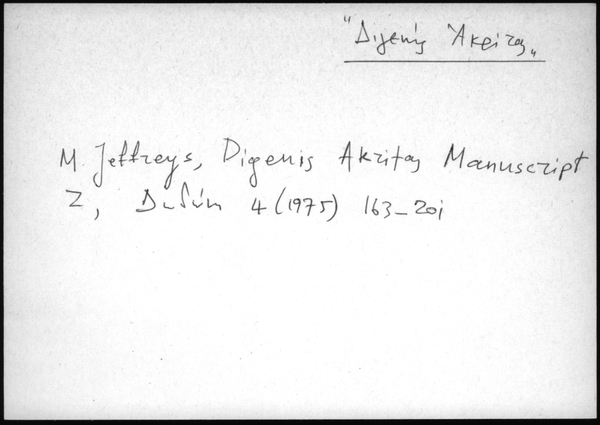 "Διγενής Ἀκρίτας„
M. Jeffreys, Digenis Akritas Manuscript
Z, Δωδώνη 4 (1975) 163-201